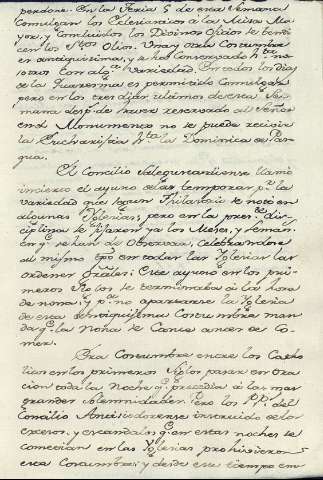 perdone. En la Feria 5 de esta Semana
Comulgan los Eclesiasticos á la Misa Ma-
yor, y concluidos los Divinos Oficios se bendi-
cen los Stos Olios. Una y otra Costumbre
es antiquisima, y se há conservado hta no-
sotros con algª variedad. En todos los dias
de la Quaresma es permitido Comulgar
pero en los tres dias ultimos de esta Se-
mana despˢ de haver reservado al Señor
en el Monumento no se puede recivir
la Euchâristia hta la Dominica de Pas-
qua.
El Concilio Salegunstadiense llamó
incierto el ayuno de las temporas pʳ la
variedad que segun Thilasais se notó en
algunas Yglesias, pero en la presᵗᵉ dis-
ciplina se fixaron ya los Meses, y Seman.
en qᵉ se han de Observar, celebrandose
al mismo tpo en todas las Yglesias las
ordenes Grales: Este ayuno en los pri-
meros Siglos se terminaba á la hora
de nona; y pʳ no apartarse la Yglesia
de esta antiquisima Costumbre man-
da qᵉ la Nona se Cante antes de Co-
mer.
Era Costumbre entre los Catho-
licos en los primeros Siglos pasar en ora-
cion toda la Noche qᵉ precedia á las mas
grandes solemnidades. Pero los P.P. del
Concilio Antisiodorense instruido de los
excesos, y escandalos qᵉ en estas noches se
cometian en las Yglesias prohivieron
esta costumbre; y desde este tiempo em-